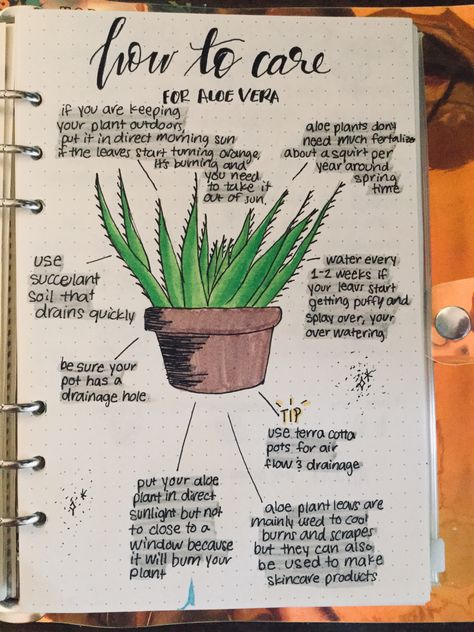 how to care
FOR ALOE VERA
if you are keeping
your plant outdoors,
put it in direct morning sun
if the leaves start turning orange,
it's burning and
you need
to take it
out of sun.
aloe plants dony
need much fertalize
about a squirt per
year around
spring
time
use
succelant
soil that
drains quickly
water every
1-2 weeks if
your leavs start
getting puffy and
splay over, your
over watering.
be sure your
pot has a
drainage hole
TIP
use terra cotta
pots for air
flow & drainage
put your aloe
plant in direct
sunlight but not
to close to a
window because
it will burn your
plant
aloe plant leavs are
mainly used to cool
burns and scrapes
but they can also
be used to make
skincare products